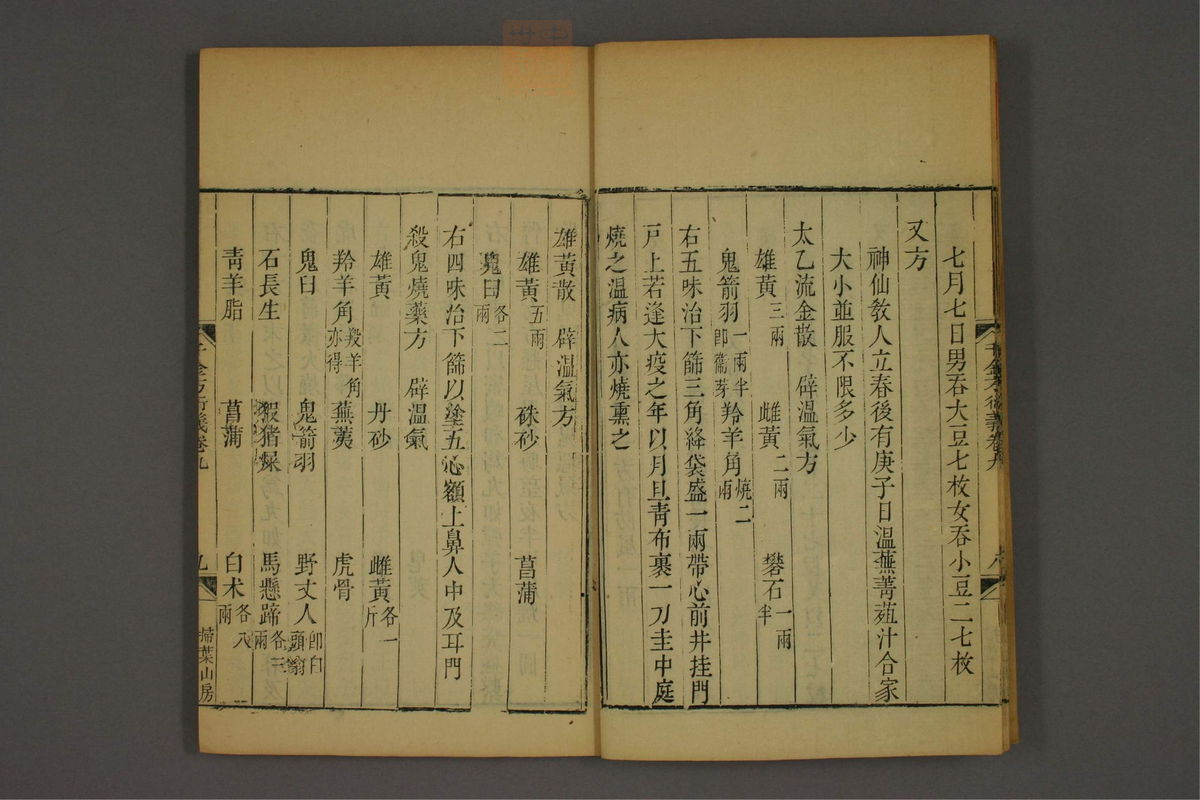 七月七日男吞大豆七枚女吞小豆二七枚
又方
神仙教人立春後有庚子日溫蕪菁葅汁合家
大小並服不限多少
太乙流金散　辟溫氣方
雄黃三兩　雌黃二兩　礬石一兩半
鬼箭羽一兩半卽衞芽　羚羊角燒二兩
右五味治下篩三角絳袋盛一兩帶心前并挂門
戸上若逢大疫之年以月旦靑布裹一刀圭中庭
燒之溫病人亦燒熏之
雄黃散　辟溫氣方
雄黃五兩　硃砂　菖蒲
鬼臼各二兩
右四味治下篩以塗五心額上鼻人中及耳門
殺鬼燒藥方　辟溫氣
雄黃　丹砂　雌黃各一斤
羚羊角羖羊角亦得　蕪荑　虎骨
鬼臼　鬼箭羽　野丈人卽白頭翁
石長生　猳猪屎　馬懸蹄各三兩
靑羊脂　菖蒲　白术各八兩
千金方衍義卷九　九　掃葉山房